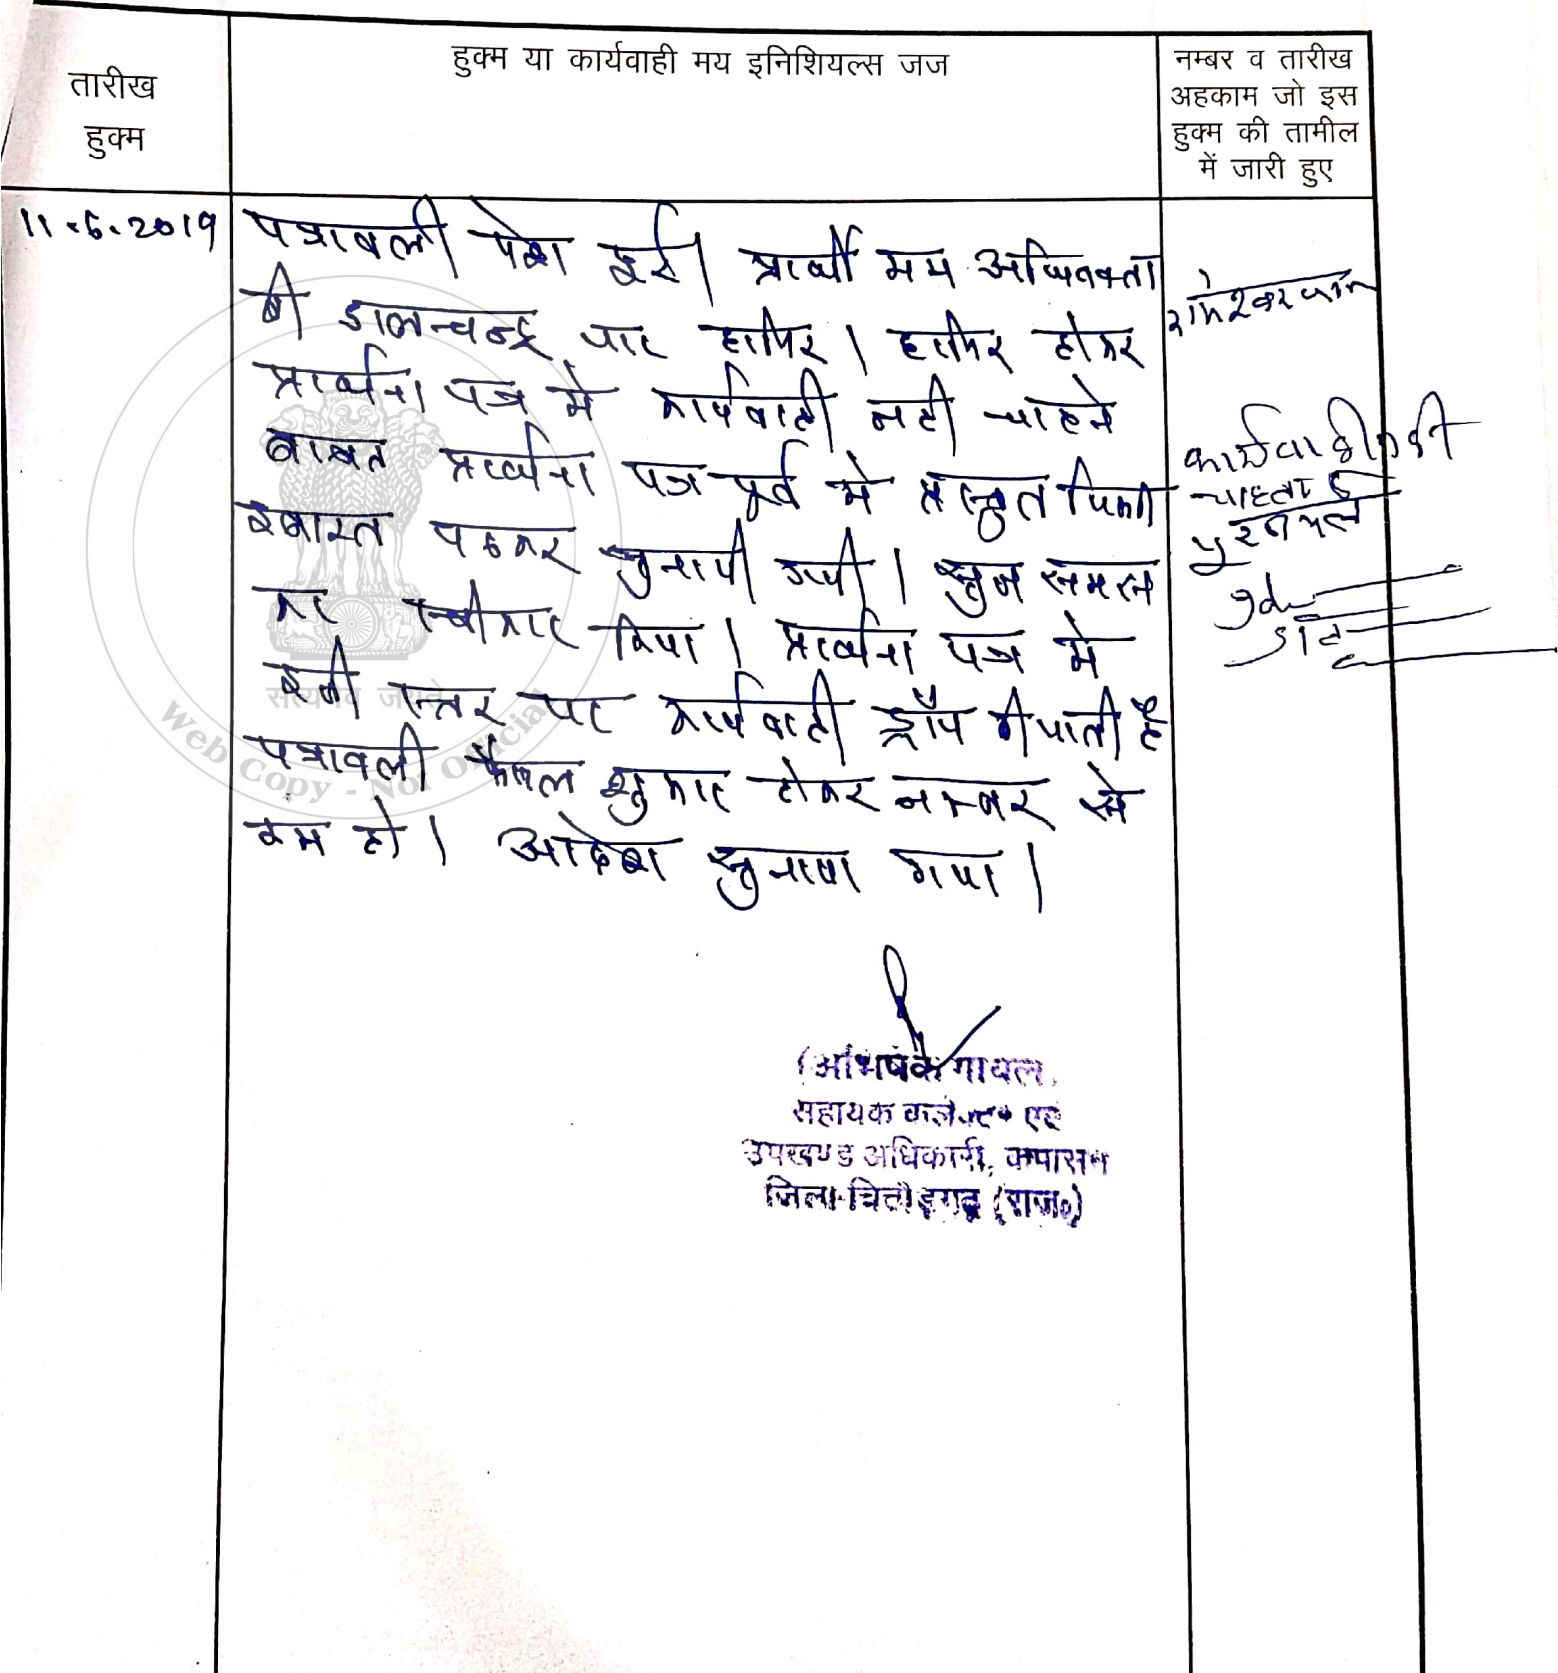 तारीख
हुक्म
हुक्म या कार्यवाही मय इनिशियल्स जज
नम्बर व तारीख
अहकाम जो इस
हुक्म की तामील
में जारी हुए
11.6.2019
पत्रावली पेश हुई। प्रार्थी मय अधिवक्ता
श्री डालचन्द्र जाट हाजिर। हाजिर होकर
प्रार्थना पत्र मे कार्यवाही नही चाहने
बाबत प्रार्थना पत्र पूर्व मे प्रस्तुत किया
इबारत पढकर सुनायी गयी। सुन समझ
कर स्वीकार किया। प्रार्थना पत्र मे
इसी स्तर पर कार्यवाही ड्रॉप की जाती है
पत्रावली फैसल शुमार होकर नम्बर से
कम हो। आदेश सुनाया गया।
रामेश्वर लाल
कार्यवाही नही
चाहता
पुरणमल
(अभिषेक गोयल)
सहायक कलेक्टर एवं
उपखण्ड अधिकारी, कपासन
जिला-चित्तौड़गढ़ (राज०)
सत्यमेव जयते
Web Copy - Not Official